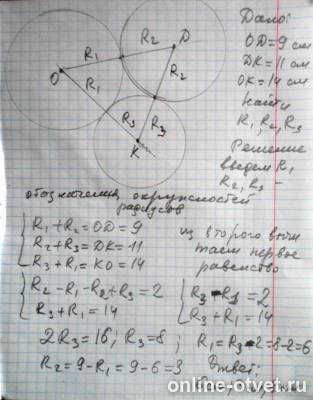 R₁
R₂
D
O
R₁
R₂
R₃
R₃
K
Дано:
OD=9 см
DK=11 см
OK=14 см
Найти
R₁, R₂, R₃
Решение
введем R₁
R₂, R₃ –
обозначения окружностей
радиусов
R₁+R₂=OD=9
R₂+R₃=DK=11
R₃+R₁=KO=14
из второго вычи
таем первое
равенство
R₂-R₁-R₂+R₃=2
R₃+R₁=14
R₃-R₁=2
R₃+R₁=14
2R₃=16; R₃=8; R₁=R₃-2=8-2=6
R₂=9-R₁=9-6=3 Ответ:
online-otvet.ru